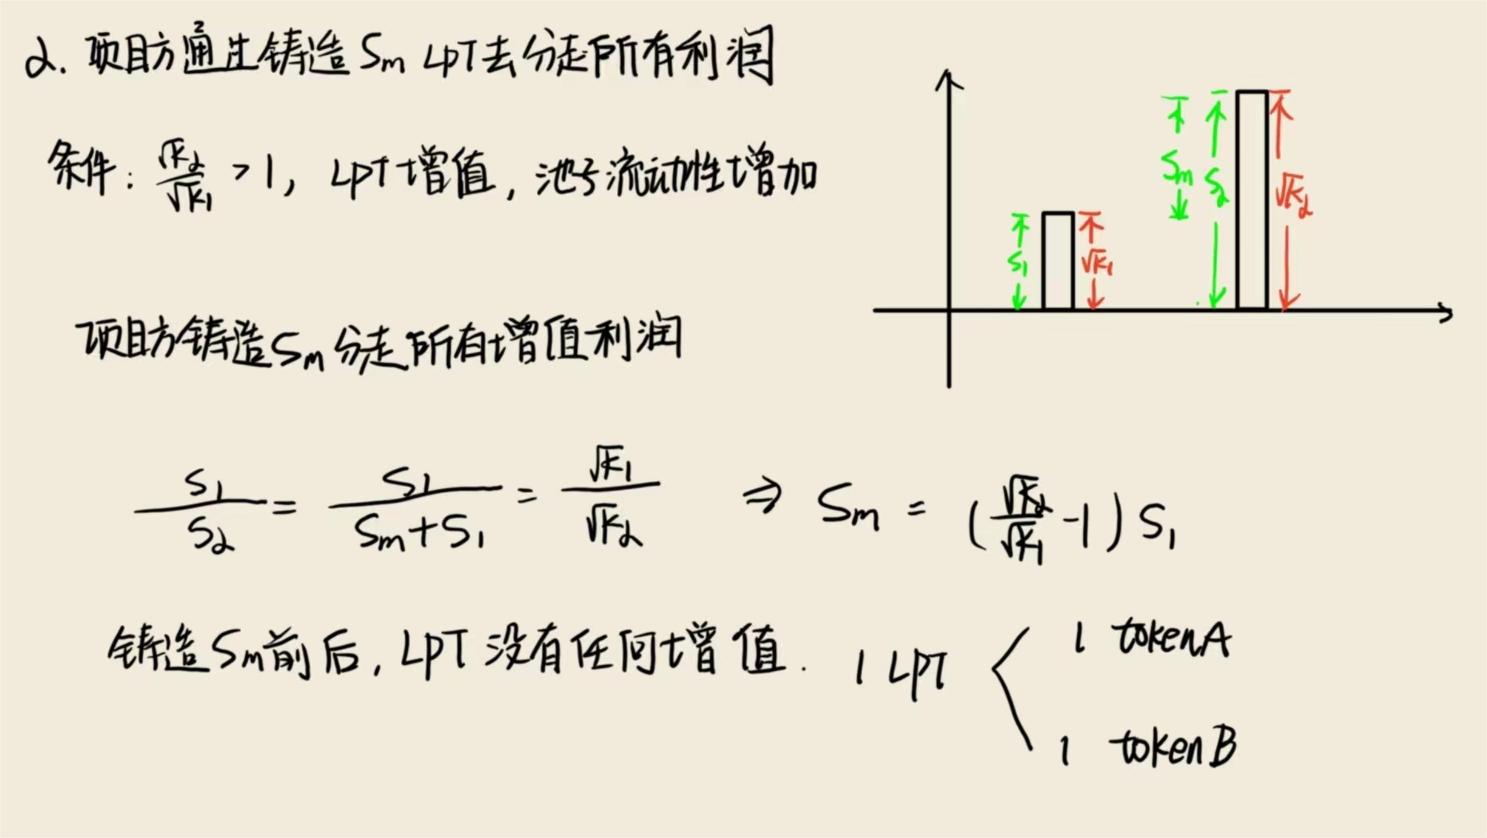 2. 项目方通过铸造 Sm LPT去分走所有利润
条件: √K2/√K1 > 1, LPT增值, 池子流动性增加
项目方铸造Sm分走所有增值利润
S1/S2 = S1/(Sm+S1) = √K1/√K2 ⇒ Sm = (√K2/√K1 - 1) S1
铸造Sm前后, LPT 没有任何增值.
1 LPT
1 tokenA
1 tokenB
S1
√K1
Sm
S2
√K2